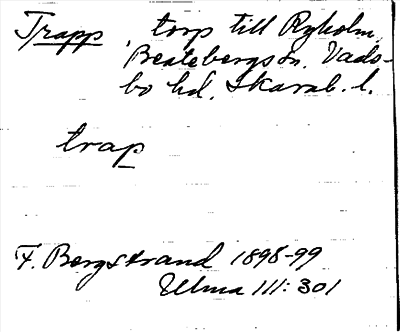 Trapp, torp till Ryholm,
Beatebergs sn. Vads-
bo hd. Skarab. l.
trap
F. Bergstrand 1898-99
Ulma 111:301